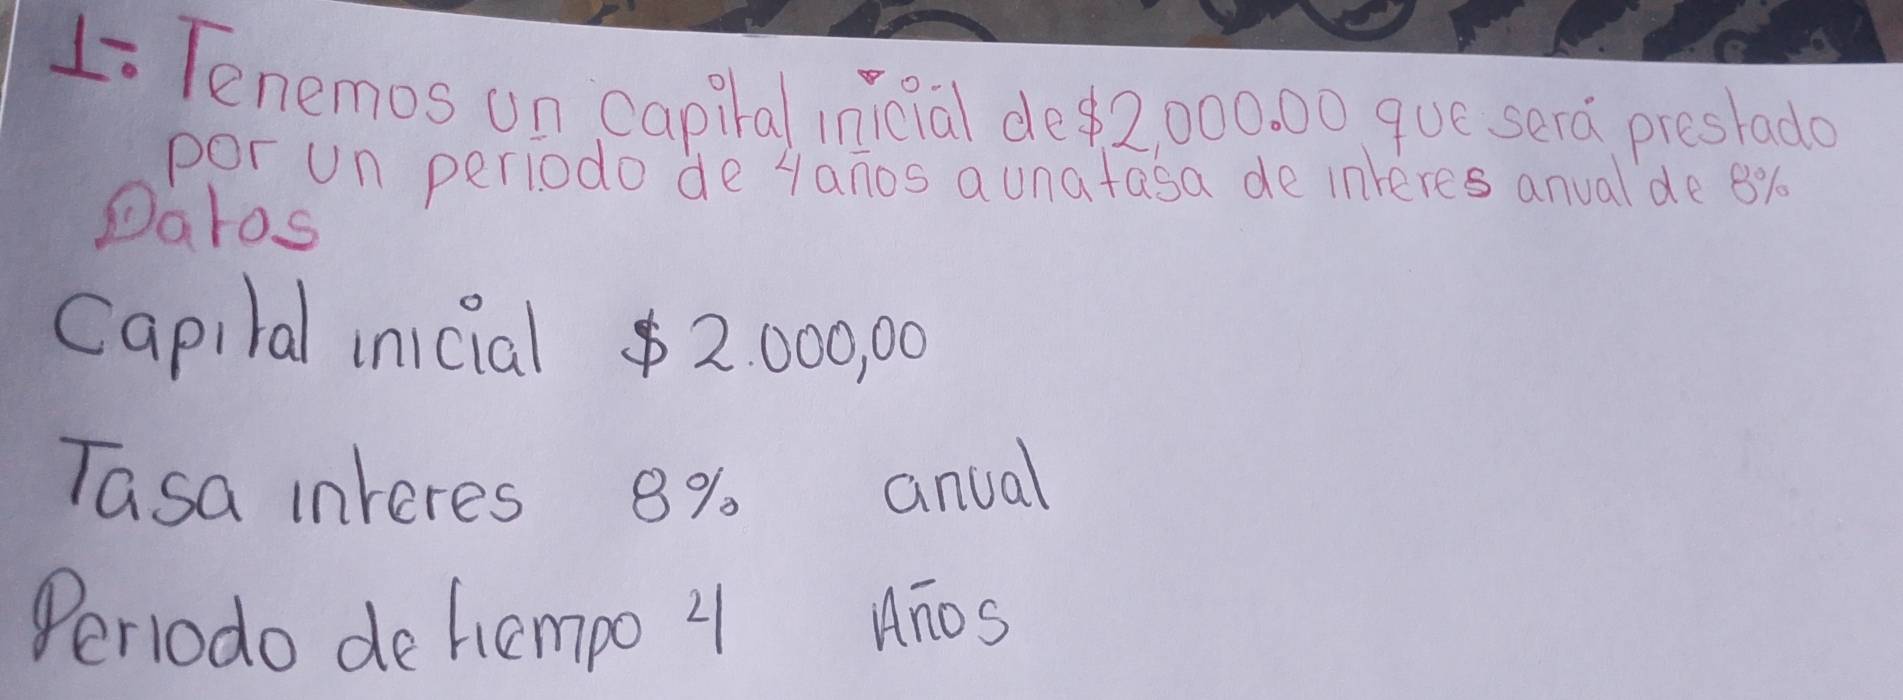 1: Tenemos un capital inicial de $2,000.00 que será prestado
por un periodo de 4 años a una tasa de interes anual de 8%
Datos
Capital inicial $ 2.000,00
Tasa interes 8% anual
Periodo de tiempo 4 Años